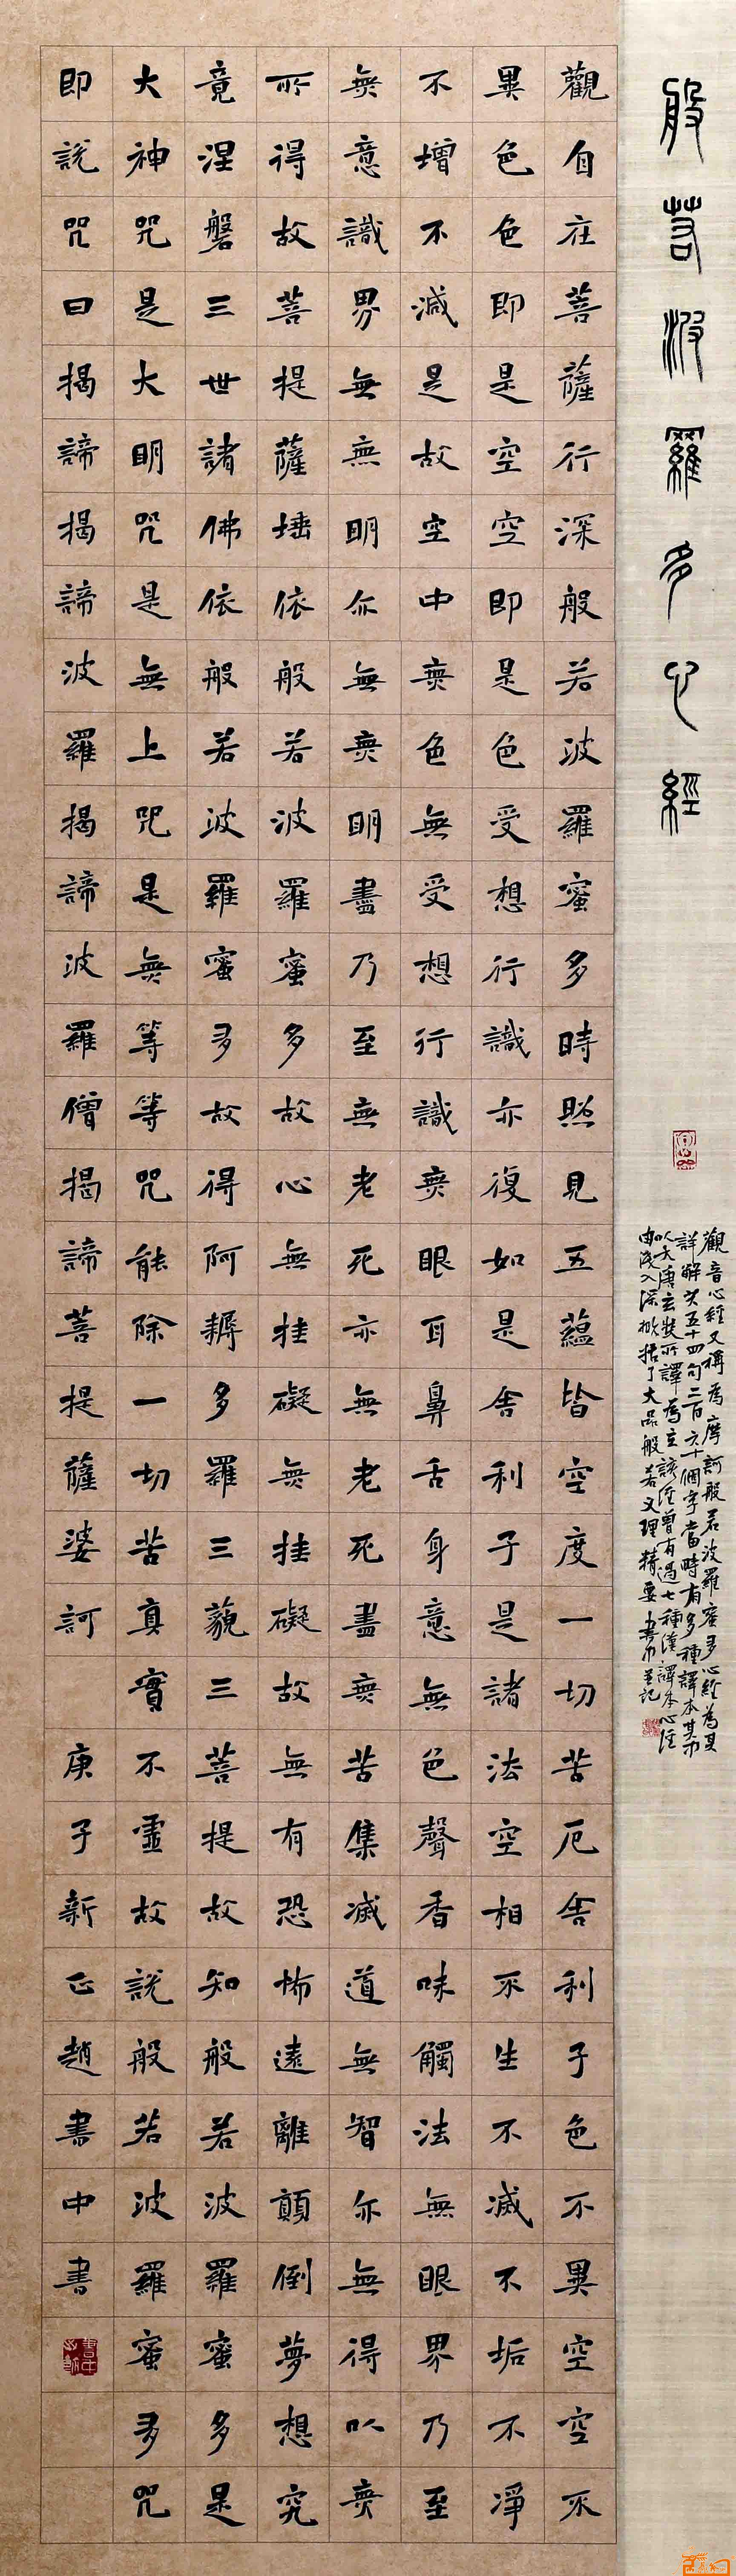 般若波羅多心經
觀音心經又稱為摩訶般若波羅蜜多心經為其
詳解共五十四句二百六十個字當時有多種譯本其中
以大唐玄奘所譯為主該經曾有過七種漢譯本心經
由淺入深概括了大品般若义理精要書中並記
觀自在菩薩行深般若波羅蜜多時照見五蘊皆空度一切苦厄舍利子色不異空空不
異色色即是空空即是色受想行識亦復如是舍利子是諸法空相不生不滅不垢不淨
不增不減是故空中無色無受想行識無眼耳鼻舌身意無色聲香味觸法無眼界乃至
無意識界無無明亦無無明盡乃至無老死亦無老死盡無苦集滅道無智亦無得以無
所得故菩提薩埵依般若波羅蜜多故心無挂礙無挂礙故無有恐怖遠離顛倒夢想究
竟涅磐三世諸佛依般若波羅蜜多故得阿耨多羅三藐三菩提故知般若波羅蜜多是
大神咒是大明咒是無上咒是無等等咒能除一切苦真實不虛故說般若波羅蜜多咒
即說咒曰揭諦揭諦波羅揭諦波羅僧揭諦菩提薩婆訶
庚子新正趙書中書